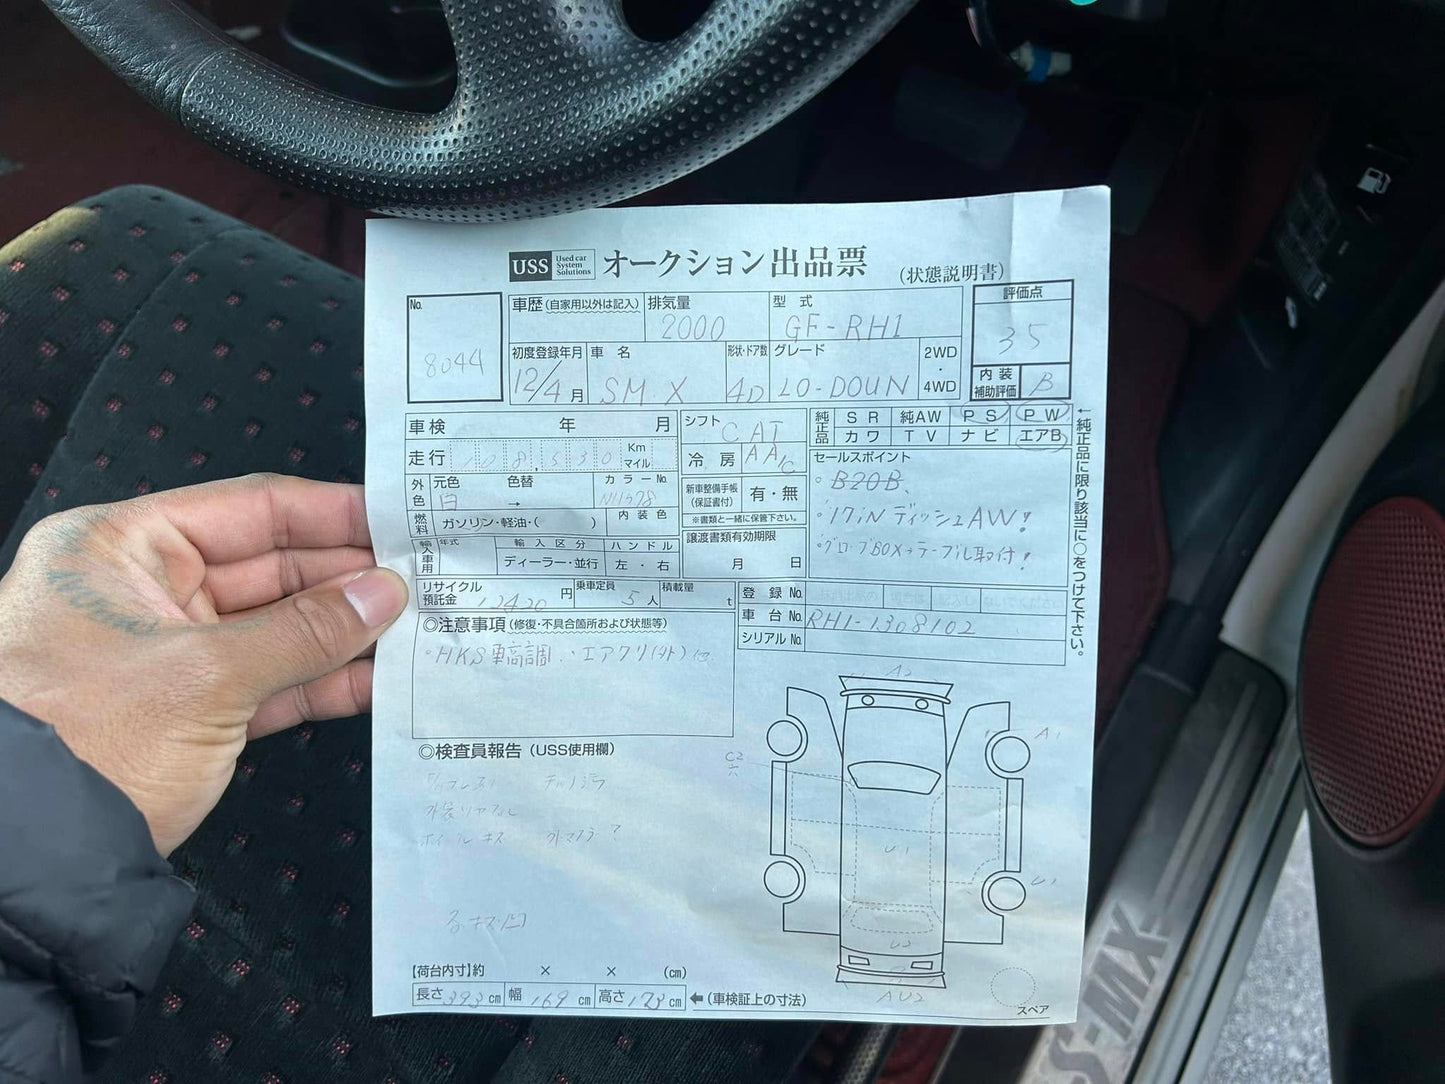 USS Used car System Solutions オークション出品票 (状態説明書)
No. 8044
車歴 (自家用以外は記入)
排気量 2000
型式 GF-RH1
評価点 35
初度登録年月 12/4月
車名 SM X
形状・ドア数 4D
グレード LO-DOUN
2WD・4WD
内装補助評価 B
車検 年 月
シフト CAT
純正品 SR 純AW PS PW
カワ TV ナビ エアB
走行 108,530 Km マイル
冷房 AAC
セールスポイント
・B20B、
・17iN ディッシュAW!
・グローブBOX→テーブル取付!
←純正品に限り該当に○をつけて下さい。
外色 元色 白 色替 → カラーNo. NH578
新車整備手帳(保証書付) 有・無
※書類と一緒に保管下さい。
燃料 ガソリン・軽油・( ) 内装色
譲渡書類有効期限 月 日
輸入車用 年式 輸入区分 ディーラー・並行 ハンドル 左・右
リサイクル預託金 12420円 乗車定員 5人 積載量 t
登録No.
車台No. RH1-1308102
シリアルNo.
◎注意事項 (修復・不具合箇所および状態等)
・HKS車高調. ・エアクリ(外)他
◎検査員報告 (USS使用欄)
外装リヤフィル
ホイールキズ 外マフラー
A2
A1
C2
穴
U1
U1
U2
AU2
スペア
【荷台内寸】約 × × (cm)
長さ393cm 幅169cm 高さ173cm ←(車検証上の寸法)
S-MX